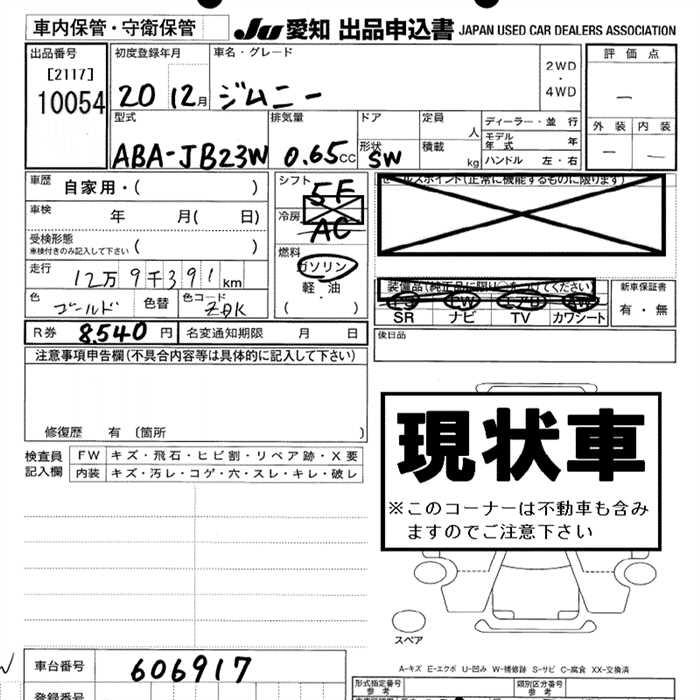 車内保管・守衛保管
JU 愛知 出品申込書 JAPAN USED CAR DEALERS ASSOCIATION
出品番号
[2117]
10054
初度登録年月
20 12月
車名・グレード
ジムニー
2WD
・
4WD
評価点
—
外装 内装
— —
型式
ABA-JB23W
排気量
0.65cc
ドア
形状
SW
定員
人
積載
kg
ディーラー・並行
モデル年式 年
ハンドル 左・右
車歴 自家用・( )
車検 年 月( 日)
受検形態
車検付きのみ記入して下さい ( )
走行 12万9千391km
色 ゴールド 色替 色コード
R券 8,540円 名変通知期限 月 日
シフト 5F
冷房 AC
燃料
ガソリン
軽・油
( )
セールスポイント(正常に機能するものに限ります)
装備品(純正品に限り○をつけてください)
PS PW エアB AW
SR ナビ TV カワシート
新車保証書
有・無
後日品
注意事項申告欄(不具合内容等は具体的に記入して下さい)
修復歴 有 〔箇所 〕
検査員記入欄
FW キズ・飛石・ヒビ割・リペア跡・X要
内装 キズ・汚レ・コゲ・穴・スレ・キレ・破レ
現状車
※このコーナーは不動車も含みますのでご注意下さい
スペア
A-キズ E-エクボ U-凹み W-補修跡 S-サビ C-腐食 XX-交換済
車台番号 606917
形式指定番号
参考
類別区分番号
参考